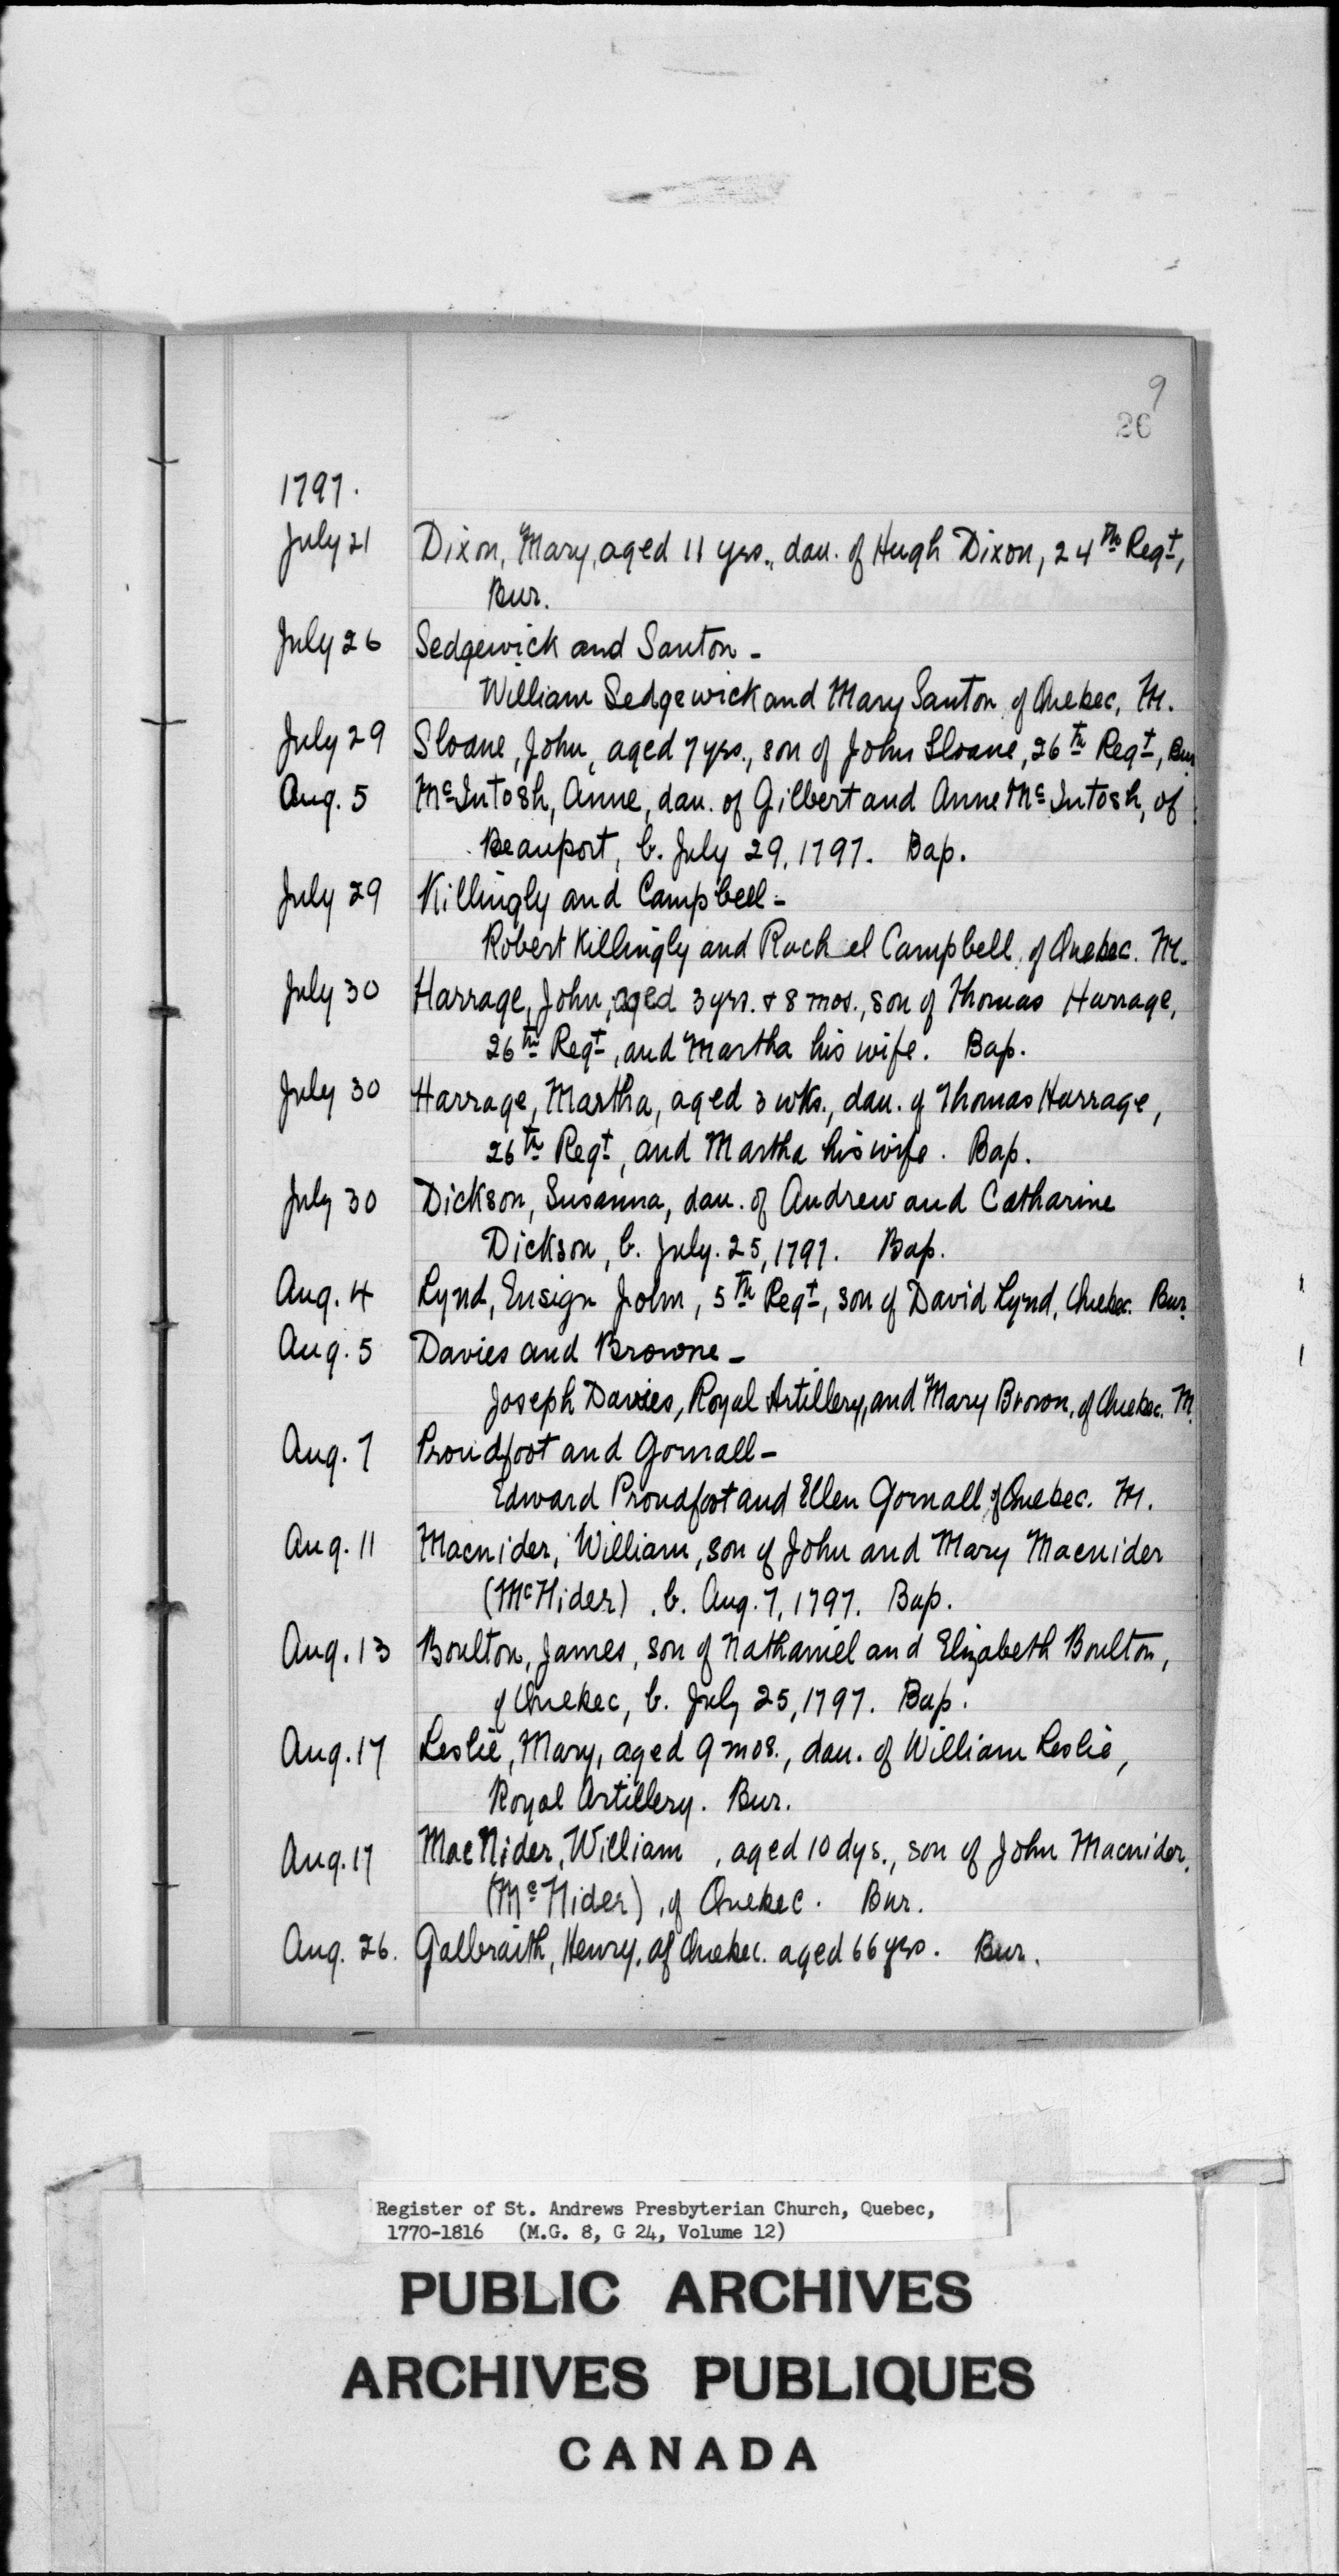 9
26
1797.
July 21 Dixon, Mary, aged 11 yrs., dau. of Hugh Dixon, 24th Regt,
Bur.
July 26 Sedgewick and Santon -
William Sedgewick and Mary Santon of Quebec, M.
July 29 Sloane, John, aged 7 yrs., son of John Sloane, 26th Regt, Bur.
Aug. 5 McIntosh, Anne, dau. of Gilbert and Anne McIntosh, of
Beauport, b. July 29, 1797. Bap.
July 29 Killingly and Campbell -
Robert Killingly and Rachel Campbell, of Quebec. M.
July 30 Harrage, John, aged 3 yrs. & 8 mos., son of Thomas Harrage,
26th Regt, and Martha his wife. Bap.
July 30 Harrage, Martha, aged 3 wks., dau. of Thomas Harrage,
26th Regt, and Martha his wife. Bap.
July 30 Dickson, Susanna, dau. of Andrew and Catharine
Dickson, b. July. 25, 1797. Bap.
Aug. 4 Lynd, Ensign John, 5th Regt, son of David Lynd, Quebec. Bur.
Aug. 5 Davies and Browne -
Joseph Davies, Royal Artillery, and Mary Brown, of Quebec. M.
Aug. 7 Proudfoot and Gornall -
Edward Proudfoot and Ellen Gornall of Quebec. M.
Aug. 11 Macnider, William, son of John and Mary Macnider
(McNider), b. Aug. 7, 1797. Bap.
Aug. 13 Boulton, James, son of Nathaniel and Elizabeth Boulton,
of Quebec, b. July 25, 1797. Bap.
Aug. 17 Leslie, Mary, aged 9 mos., dau. of William Leslie,
Royal Artillery. Bur.
Aug. 17 MacNider, William, aged 10 dys., son of John Macnider,
(McNider), of Quebec. Bur.
Aug. 26. Galbraith, Henry, of Quebec. aged 66 yrs. Bur.
Register of St. Andrews Presbyterian Church, Quebec,
1770-1816 (M.G. 8, G 24, Volume 12)
PUBLIC ARCHIVES
ARCHIVES PUBLIQUES
CANADA